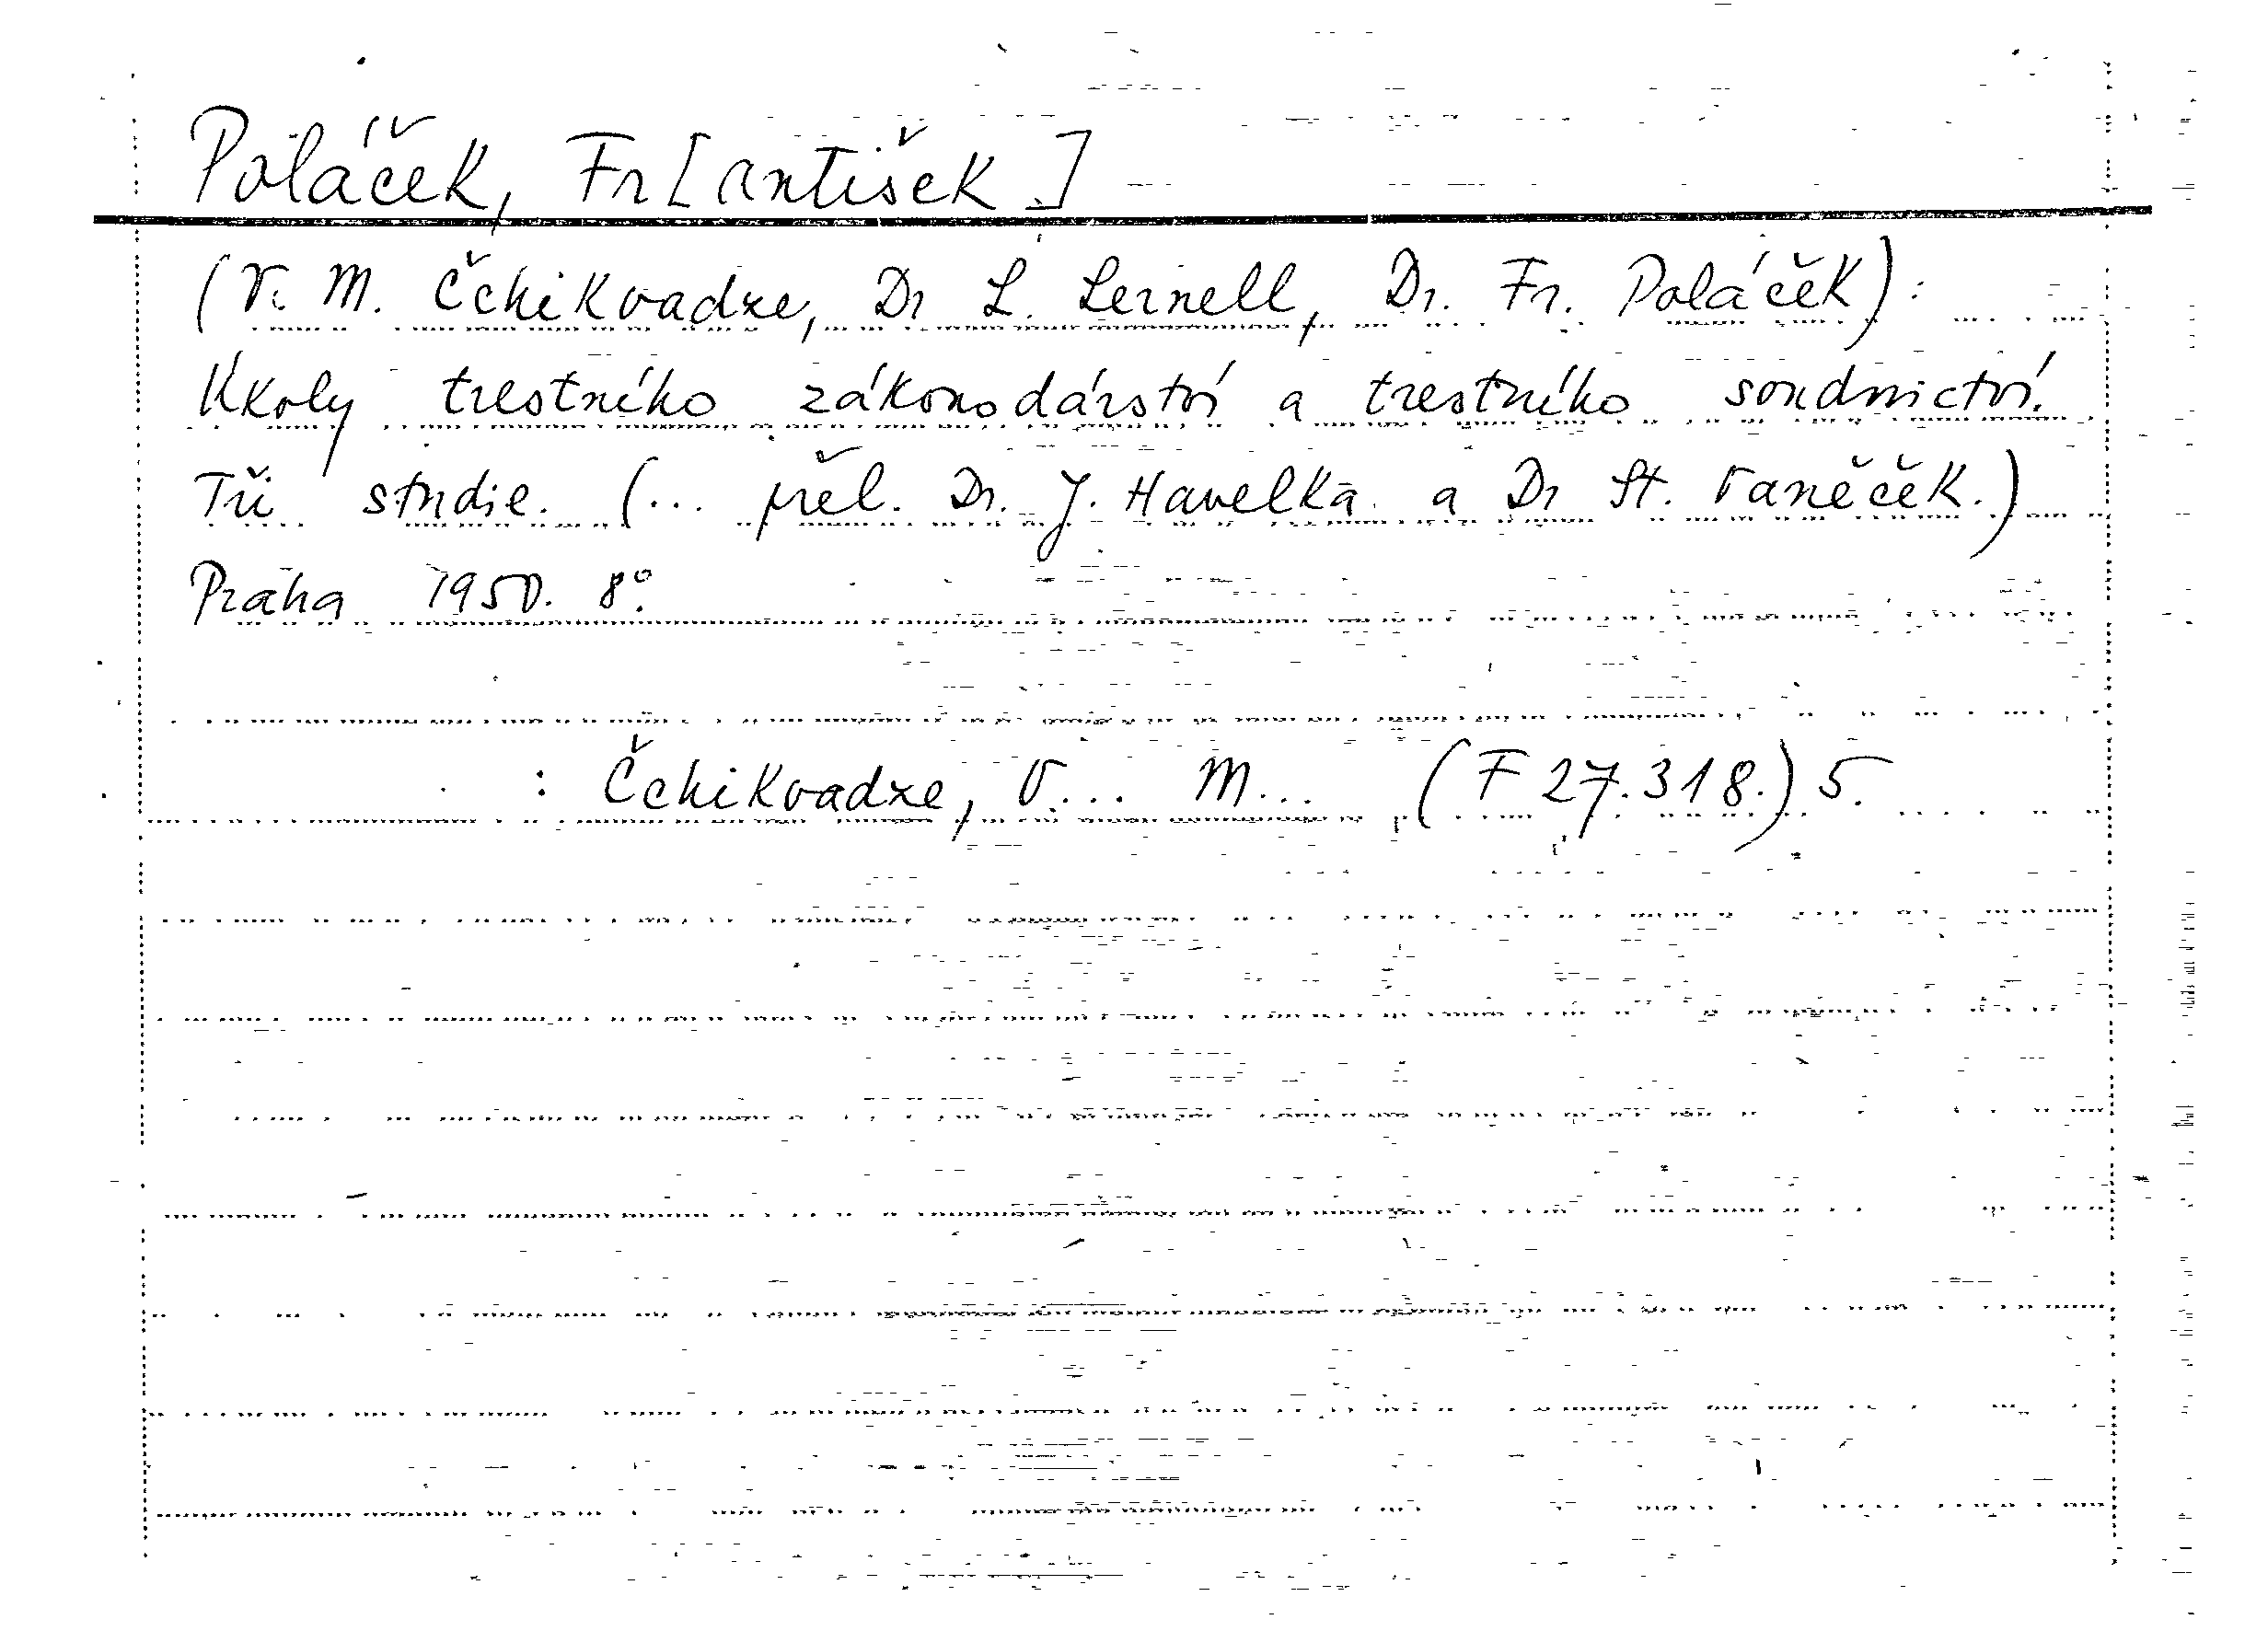 Poláček, Fr[antišek.]
(V. M. Čchikvadze, Dr L. Lernell, Dr. Fr. Poláček):
Úkoly trestního zákonodárství a trestního soudnictví.
Tři studie. (... přel. Dr. J. Havelka a Dr St. Vaněček.)
Praha 1950. 8°.
: Čchikvadze, V... M... (F 27.318.) 5.